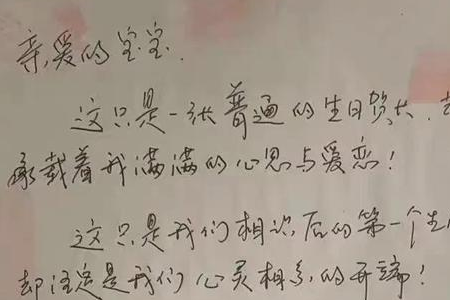 亲爱的宝宝.
这只是一张普通的生日贺卡.却
承载着我满满的心思与爱恋!
这只是我们相识后的第一个生
却注定是我们心灵相系的开端!